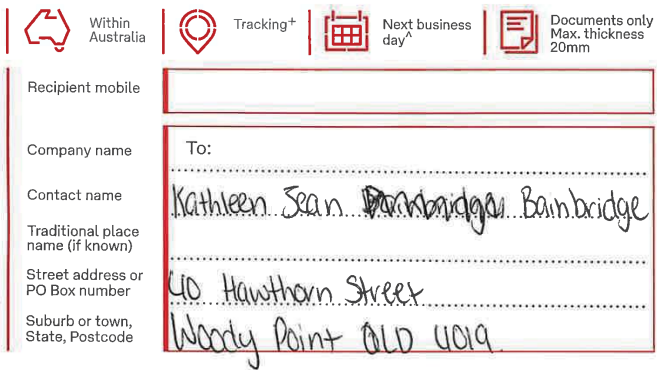 Within
Australia
Tracking+
Next business
day^
Documents only
Max. thickness
20mm
Recipient mobile
Company name
To:
Contact name
Kathleen Jean Bainbridge
Traditional place
name (if known)
Street address or
PO Box number
40 Hawthorn Street
Suburb or town,
State, Postcode
Woody Point QLD 4019